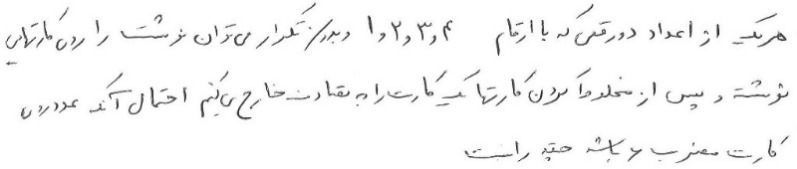 هریک از اعداد دورقمی که با ارقام ۴و۳و۲و۱ و بدون تکرار می‌توان نوشت را روی کارتهایی
نوشته و پس از مخلوط کردن کارتها یک کارت را به تصادف خارج می‌کنیم احتمال آنکه عدد روی
کارت مضرب ۶ باشد چقدر است